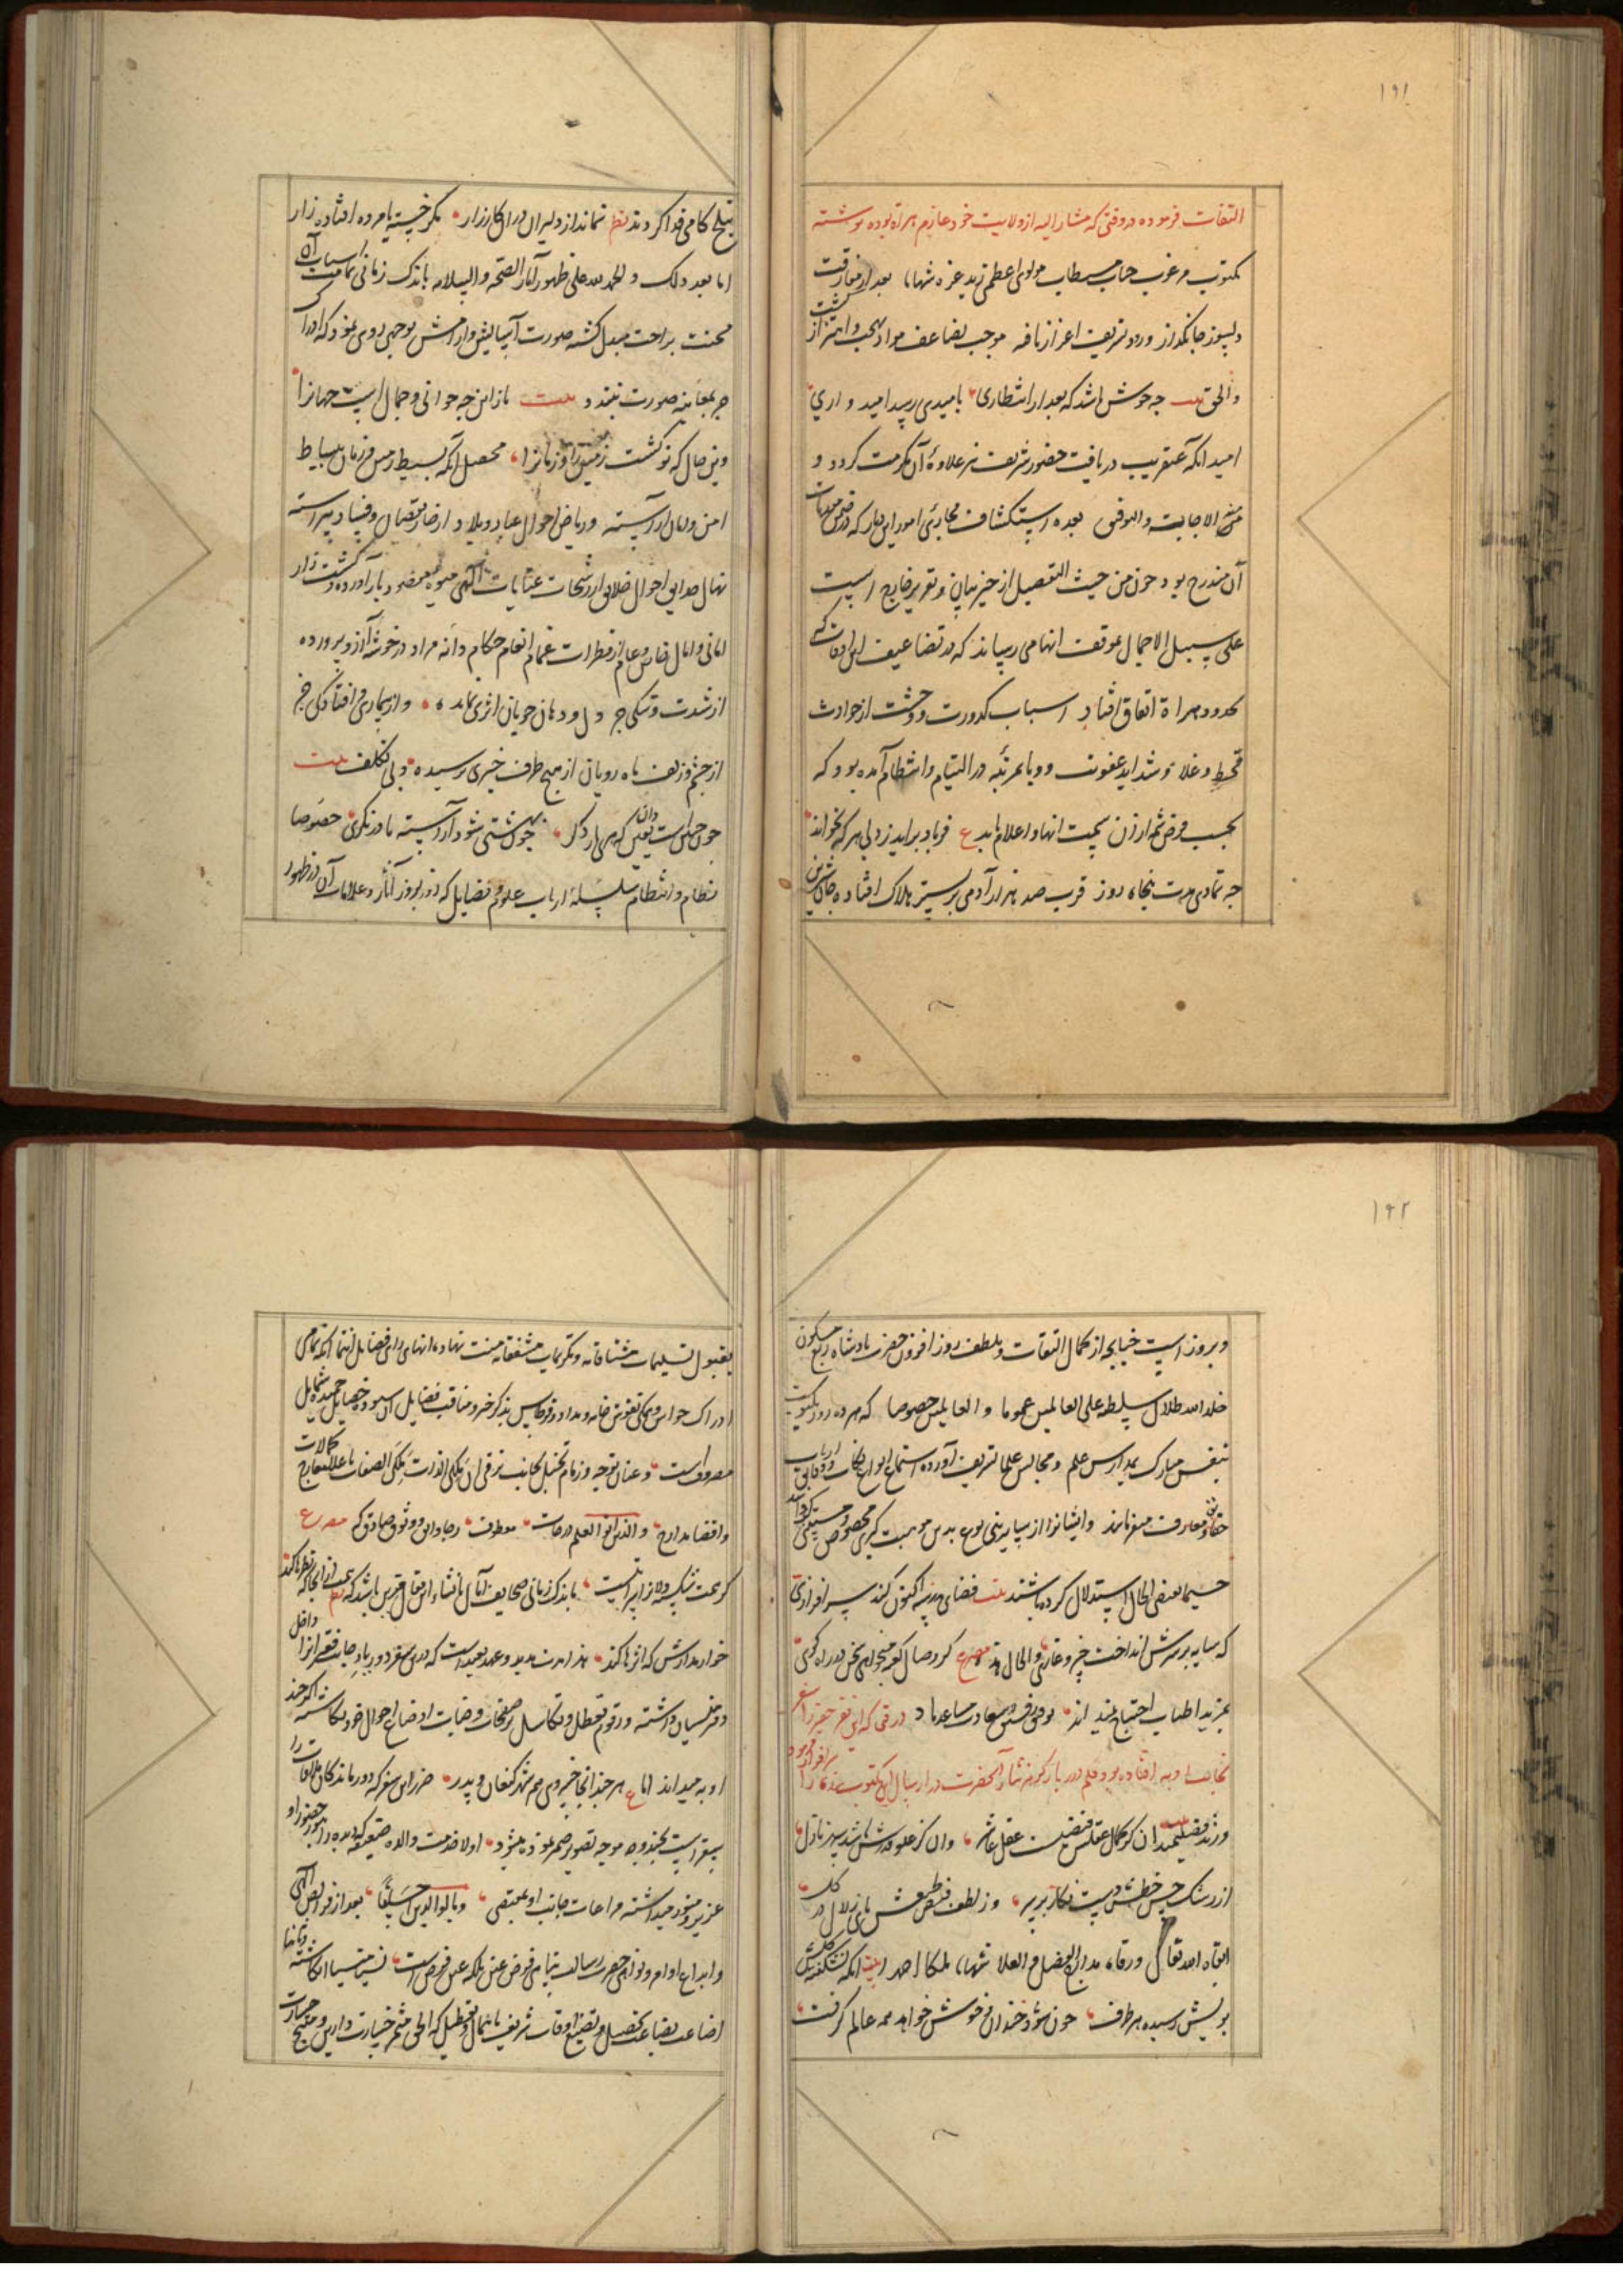 ١٩١
التفات فرموده در وقتی که مشار الیه از ولایت خود عازم هراة بوده نوشته
مکتوب مرغوب جناب مستطاب مولوی اعظمی زید عزه شهابا بعد از مفارقت
دلسوز جانگداز ورود شریف اعزاز یافه موجب تضاعف مواد بهجت و اهتزاز گشت
والحق بیت چه خوش باشد که بعد از انتظاری بامیدی رسد امیدواری
امید آنکه عنقریب دریافت حضور شریف نیز علاوۀ آن مکرمت گردد و
من الله الاجابت والتوفیق بعده استکشاف مجاری امور این دیار که در ضمن
آن مندرج بود چون من حیث التفصیل از حیز بیان و تقریر خارج است
علی سبیل الاجمال بموقف انها می رساند که در تضاعیف این اوقات که
بحدود هراة اتفاق افتاد اسباب کدورت و وحشت از حوادث
قحط و غلا و شداید عفونت و وبا بمرتبه در التیام و انتظام آمده بود که
بحسب فرض شمه از آن بجهت انها و اعلام یابد ع فریاد براید ز دل هر که بخواند
چه تمادی مدت پنجاه روز قرب صد هزار آدمی بر بستر هلاک افتاده جان شیرین
بتلخ کامی فدا کردند نظم نماند از دلیران دران کارزار مگر خسته یا مرده افتاده زار
اما بعد ذلک و الحمد لله علی ظهور آثار الصحه والسلامه باندک زمانی اسباب آن
محنت براحت مبدل کشته صورت آسایش و آرامش بوجهی روی نمود که ادراک
جز بمعاینه صورت نبندد بیت باز این چه جوانی و جمال است جهانرا
وین حال که نو کشت زمین را و زمانرا محصل آنکه بسیط زمین و زمان ببساط
امن و امان آراسته و ریاض احوال عباد و بلاد از خار نقصان و فساد پیراسته
نهال حدایق احوال خلایق از رشحات عنایات الهی میوه مقصود ببار آورده و کشت زار
امانی و آمال خاص و عام از قطرات غمام انعام حکام دانه مراد در خوشه آرزو پرورده
از شدت و تنگی جز در دل و دهان خوبان اثری نمانده و از بیماری و افتادگی جز
از چشم و زلف ماه رویان از هیچ طرف خبری نرسیده و بی تکلف بیت
چون جهان است یقین دان که بهاری دگر چون بهشتی شود آراسته تا درنگری خصوصا
نظام و انتظام سلسلۀ ارباب علوم و فضایل که روز بروز آثار و علامات آن در ظهور
١٩٢
و بروز است چنانچه از کمال التفات و بلطف روز افزون حضرت پادشاه ربع مسکون
خلد الله ظلال سلطنه علی العالمین عموما و العالمین خصوصا که هر ده روز یکنوبت
بنفس مبارک بمدارس علم و مجالس علما تشریف آورده استماع انواع نکات و دقایق ارباب
حقایق و معارف میفرمایند و ایشانرا از سایر بنی نوع بدین موهبت کبری مخصوص و مستثنی گردانیده
حسیما بمقتضی الحال استدلال کرده باشند بیت فضای مدرسه اکنون کند سرافرازی
که سایه بر سرش انداخت خسرو غازی والحال هذه مصرع گر وصال کعبه میخواهی سخن در راه گوی
بمزید اطناب احتیاج نمی بیند توفیق رفیق و سعادت مساعد باد در وقتی که این فقیر حقیر را سفر
بجانب اوبه افتاده بود و قلم درر بار گوهر نثار آنحضرت در ارسال این مکتوب بنده را سرافراز فرموده
ورند فضلی بمیدان کز کمال عقلش مقتبس عقل عاشر وان کز علو قدرش باشد سپهر نازل
از رشک حسن خطش دست نگار بر سر وز لطف فیض طبعش پای زلال در گل
ابقاه الله تعالی ورقاه مدارج الفضل والعلا شهابا بلکا احد بیت آنکه نشکفته گلش
بویش رسیده هر طرف چون شود خندان و خوش خواهد همه عالم گرفت
بقبول تسلیمات مشتاقانه و تکریمات مشفقانه منت نهاده انهای رای فضایل انتما آنکه تمامی
ادراک حواس و همگی نقوش خامه و مداد و قرطاس بذکر خیر و مناقب فضایل آن ستوده خصایل حمیده شمایل
مصروفست و عنان توجه و زمام تخیل بجانب ترقی آن ملکی الذات ملکی الصفات باعلا معارج کمالات
و اقصا مدارج والذین اوتوا العلم درجات معطوف رجا واثق و وثوق صادق که مصرع
کر همت شکسته دلانرا اثر است باندک زمانی صحایف آمال بانشاء این مقال مقرون باشد که نظم همت از آنجا که نظرها کند
خوار مدارش که اثرها کند هذا مدت مدید و عهد بعید است که درین سفر دور پای حیات فقیر انرا داخل
دفتر نسیان داشته و رقوم تعطل و تکاسل بر صفحات وضیات اوضاع احوال خود نگاشته اگر چند
او به میداند اما ع هر چند از آنجا خبری دهیم شهر کنعان و پدر ضرر این سفر که دور ماندگان ملاقات را
سقر است بچند وجه موجه تصویر ضمیر نموده میشود اولا خدمت والده ضعیفه که دیده را بنور حضور او
عزیز و منور میداشته مراعات جانب او بمقتضی و بالوالدین احسانا بعد از فرایض الهی
و اتباع اوامر و نواهی حضرت رسالت پناهی فرض عین بلکه عین فرض است نسیا منسیا انگاشته و ثانیا
اضاعت بضاعت تحصیل و تضییع اوقات شریف باهمال و تعطیل که الحق مثمر خسارت دارین و منتج خسارت